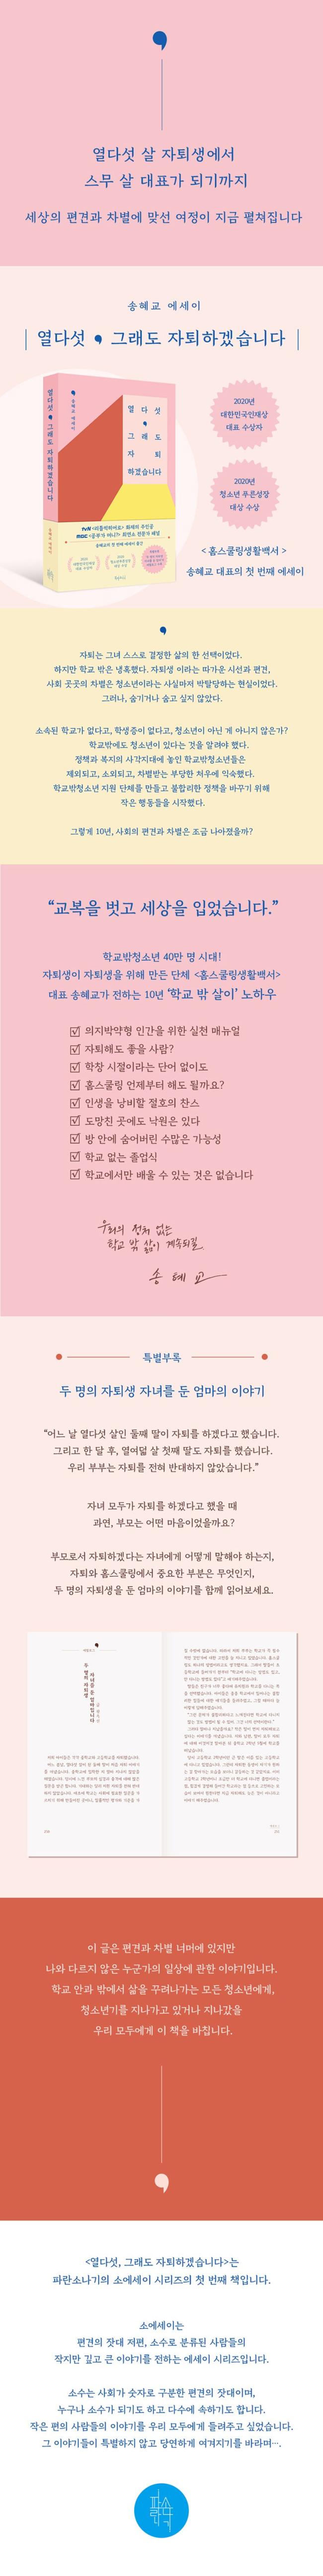 열다섯 살 자퇴생에서
스무 살 대표가 되기까지
세상의 편견과 차별에 맞선 여정이 지금 펼쳐집니다
송혜교 에세이
열다섯, 그래도 자퇴하겠습니다
열다섯, 그래도 자퇴하겠습니다
송혜교 에세이
열다섯
,
그래도
자퇴
하겠습니다
2020년
대한민국인재상
대표 수상자
2020년
청소년 푸른성장
대상 수상
<홈스쿨링생활백서>
송혜교 대표의 첫 번째 에세이
자퇴는 그녀 스스로 결정한 삶의 한 선택이었다.
하지만 학교 밖은 냉혹했다. 자퇴생 이라는 따가운 시선과 편견,
사회 곳곳의 차별은 청소년이라는 사실마저 박탈당하는 현실이었다.
그러나, 숨기거나 숨고 싶지 않았다.
소속된 학교가 없다고, 학생증이 없다고, 청소년이 아닌 게 아니지 않은가?
학교밖에도 청소년이 있다는 것을 알려야 했다.
정책과 복지의 사각지대에 놓인 학교밖청소년들은
제외되고, 소외되고, 차별받는 부당한 처우에 익숙했다.
학교밖청소년 지원 단체를 만들고 불합리한 정책을 바꾸기 위해
작은 행동들을 시작했다.
그렇게 10년, 사회의 편견과 차별은 조금 나아졌을까?
“교복을 벗고 세상을 입었습니다.”
학교밖청소년 40만 명 시대!
자퇴생이 자퇴생을 위해 만든 단체 <홈스쿨링생활백서>
대표 송혜교가 전하는 10년 ‘학교 밖 살이’ 노하우
의지박약형 인간을 위한 실천 매뉴얼
자퇴해도 좋을 사람?
학창 시절이라는 단어 없이도
홈스쿨링 언제부터 해도 될까요?
인생을 낭비할 절호의 찬스
도망친 곳에도 낙원은 있다
방 안에 숨어버린 수많은 가능성
학교 없는 졸업식
학교에서만 배울 수 있는 것은 없습니다
우리의 정처 없는
학교 밖 삶이 계속되길.
송혜교
특별부록
두 명의 자퇴생 자녀를 둔 엄마의 이야기
“어느 날 열다섯 살인 둘째 딸이 자퇴를 하겠다고 했습니다.
그리고 한 달 후, 열여덟 살 첫째 딸도 자퇴를 했습니다.
우리 부부는 자퇴를 전혀 반대하지 않았습니다.”
자녀 모두가 자퇴를 하겠다고 했을 때
과연, 부모는 어떤 마음이었을까요?
부모로서 자퇴하겠다는 자녀에게 어떻게 말해야 하는지,
자퇴와 홈스쿨링에서 중요한 부분은 무엇인지,
두 명의 자퇴생을 둔 엄마의 이야기를 함께 읽어보세요.
이 글은 편견과 차별 너머에 있지만
나와 다르지 않은 누군가의 일상에 관한 이야기입니다.
학교 안과 밖에서 삶을 꾸려나가는 모든 청소년에게,
청소년기를 지나가고 있거나 지나갔을
우리 모두에게 이 책을 바칩니다.
<열다섯, 그래도 자퇴하겠습니다>는
파란소나기의 소에세이 시리즈의 첫 번째 책입니다.
소에세이는
편견의 잣대 저편, 소수로 분류된 사람들의
작지만 깊고 큰 이야기를 전하는 에세이 시리즈입니다.
소수는 사회가 숫자로 구분한 편견의 잣대이며,
누구나 소수가 되기도 하고 다수에 속하기도 합니다.
작은 편의 사람들의 이야기를 우리 모두에게 들려주고 싶었습니다.
그 이야기들이 특별하지 않고 당연하게 여겨지기를 바라며….
파란소나기